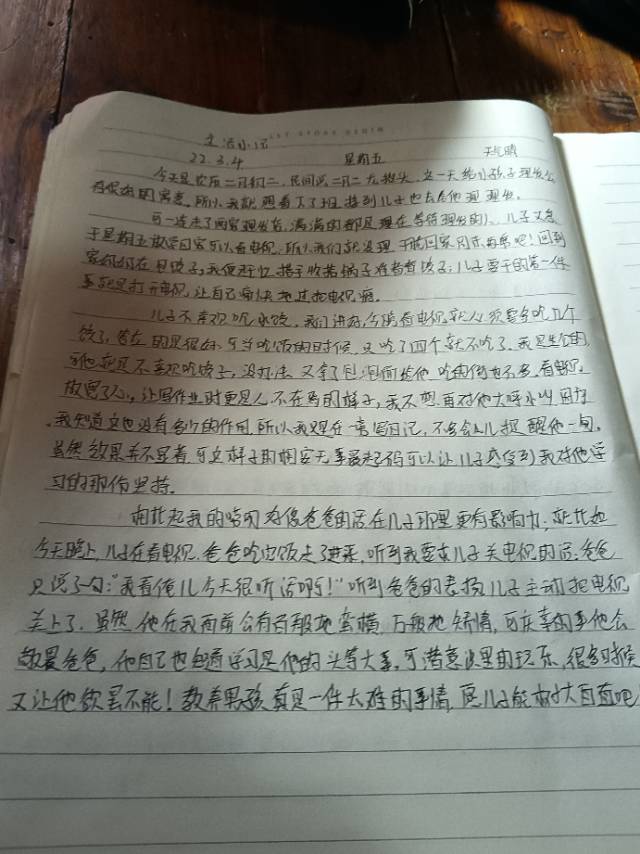 生活小记
22.3.4 星期五 天气晴
今天是农历二月初二,民间说二月二龙抬头,这一天给小孩子理发会
有很好的寓意。所以我就想着下了班,接到儿子也去给他理理发。
可一连走了两家理发店,满满的都是理在等待理发的人,儿子又急
于星期五放学回家可以看电视,所以我们就没理,干脆回家
家
事就是打开电视,让自己痛快地过把电视瘾。
儿子不喜欢吃水饺,我们讲好今晚看电视就必须要多吃几个
饺子,答应的是很好,可当吃饭的时候,只吃了四个就不吃了。我是生气的,
可他就是不喜欢吃饺子,没办法,又拿了包泡面给他,吃的倒也不多。看电视
放宽了心,让写作业时更是人不在焉的样子,我不想再对他大呼小叫,因为
我知道这也没有多少的作用,所以我现在一旁写日记,不多会儿提醒他一句。
虽然效果并不显着,可这样子的相安无事最起码可以让儿子感受到我对他学
习的那份坚持。
相比起我的唠叨,好像爸爸的话在儿子那里更有影响力,就比如
今天晚上,儿子在看电视,爸爸吃完饭走了进来,听到我要求儿子关电视的话,爸爸
只说了句:“我看俺儿今天很听话啊!”听到爸爸的表扬,儿子主动把电视
关上了。虽然他在我面前会有百般地蛮横,万般地矫情,可庆幸的事他会
敬畏爸爸,他自己也知道学习是他的头等大事,可潜意识里的玩乐,很多时候
又让他欲罢不能!教养男孩真是一件太难的事情,愿儿子能树大自直吧